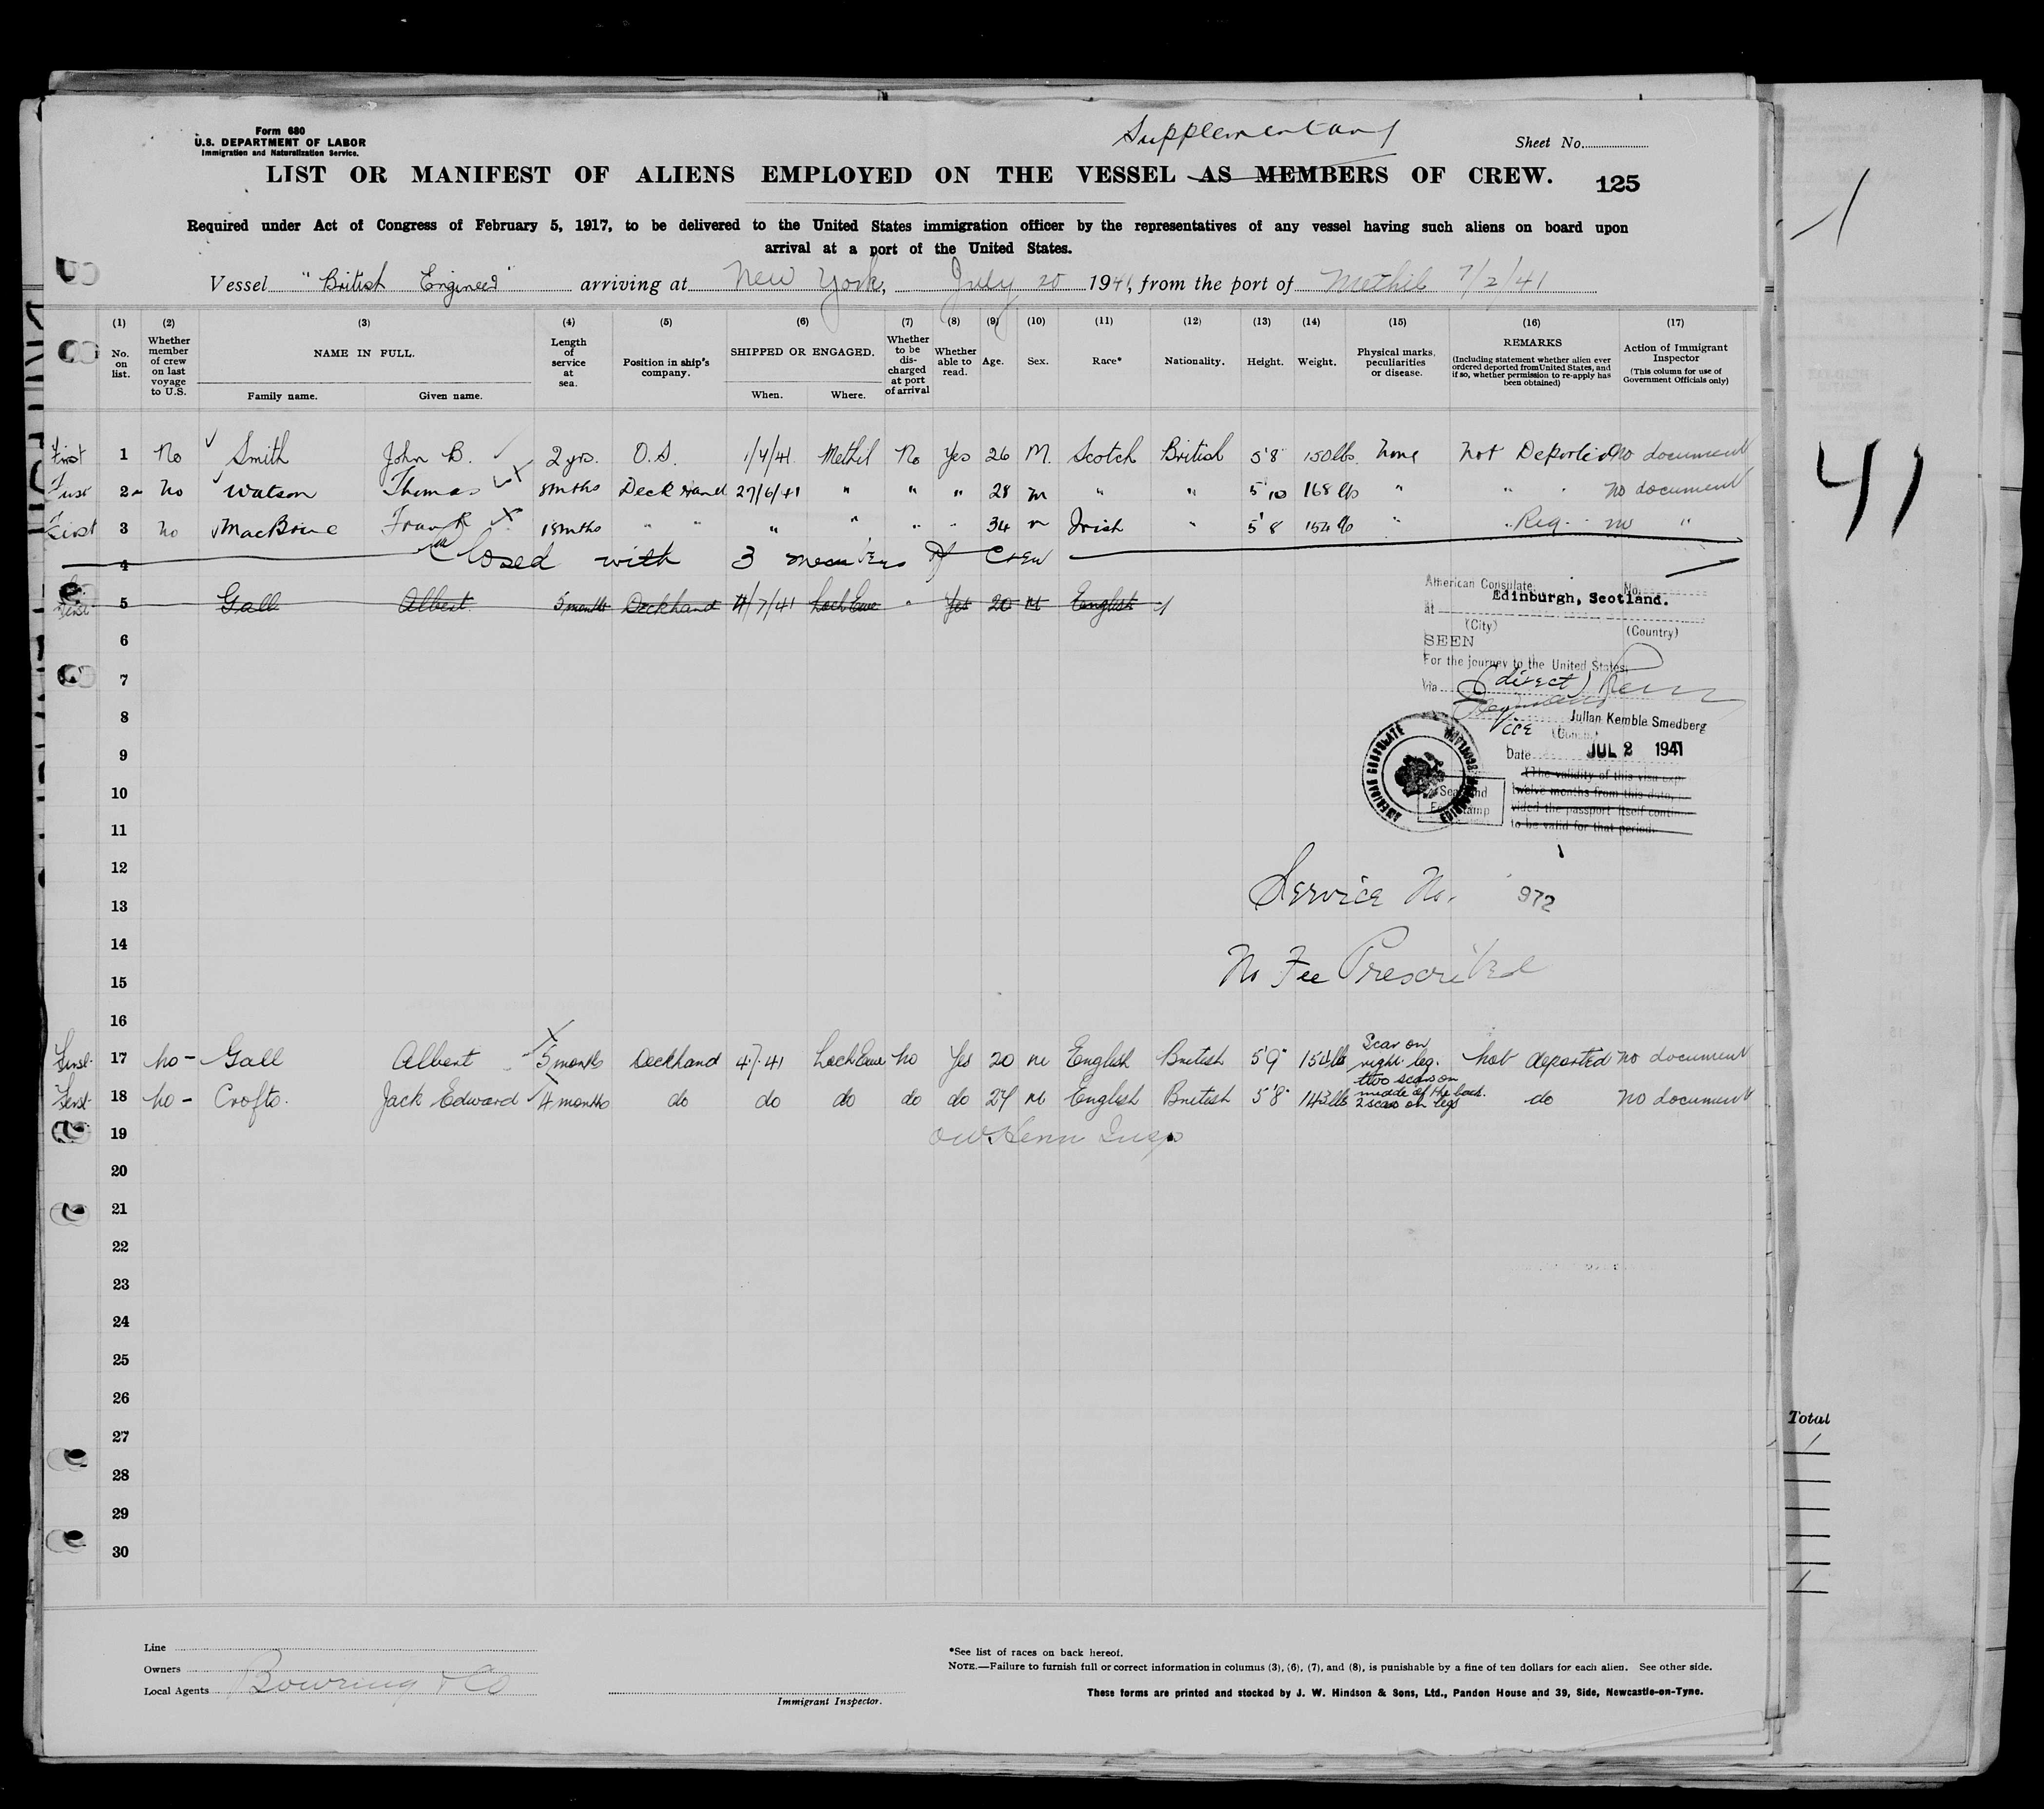 Form 680
U.S. DEPARTMENT OF LABOR
Immigration and Naturalization Service.
Supplementary
Sheet No.
LIST OR MANIFEST OF ALIENS EMPLOYED ON THE VESSEL AS MEMBERS OF CREW.
125
Required under Act of Congress of February 5, 1917, to be delivered to the United States immigration officer by the representatives of any vessel having such aliens on board upon
arrival at a port of the United States.
Vessel "British Engineer" arriving at New York, July 20 1941, from the port of Methil 7/2/41
(1) (2) (3) (4) (5) (6) (7) (8) (9) (10) (11) (12) (13) (14) (15) (16) (17)
No. on list. Whether member of crew on last voyage to U.S. NAME IN FULL. Length of service at sea. Position in ship's company. SHIPPED OR ENGAGED. Whether to be discharged at port of arrival Whether able to read. Age. Sex. Race* Nationality. Height. Weight. Physical marks, peculiarities or disease. REMARKS (Including statement whether alien ever ordered deported from United States, and if so, whether permission to re-apply has been obtained) Action of Immigrant Inspector (This column for use of Government Officials only)
Family name. Given name. When. Where.
First 1 No Smith John B. 2 yrs. O.S. Methil No Yes 26 M. Scotch British 5'8 150lbs. None Not Deported No document
First 2 No Watson Thomas 8mths Deck Hand 27/6/41 " " " 28 m " " 5'10 168 lbs " " No document
First 3 No Frank 18mths " " " " " " 34 m Irish " 5'8 154 lb " " Reg. no "
4 Closed with 3 members of crew
5 Gall Albert 5 months Deckhand 4/7/41 Loch Ewe " Yes 20 M English
American Consulate No.
at Edinburgh, Scotland.
(City) (Country)
SEEN
For the journey to the United States
Via (direct)
Julian Kemble Smedberg
Vice (Consul)
Date JUL 2 1941
(The validity of this visa exp
twelve months from this date,
vided the passport itself contin
to be valid for that period.
AMERICAN CONSULATE
6
7
8
9
10
11
12
13
14
15
16
Service No. 972
No Fee Prescribed
First 17 No - Gall Albert 5 months Deckhand 4.7.41 Loch Ewe No Yes 20 M English British 5'9" 154lb Scar on right leg. Not deported No document
First 18 No - Crofts. Jack Edward 4 months do do do do do 24 M English British 5'8" 143lb two scars on middle of the back. 2 scars on legs do No document
19
20
21
22
23
24
25
26
27
28
29
30
Line
Owners
Local Agents Bowring & Co
Immigrant Inspector.
*See list of races on back hereof.
NOTE.—Failure to furnish full or correct information in columns (3), (6), (7), and (8), is punishable by a fine of ten dollars for each alien. See other side.
These forms are printed and stocked by J. W. Hindson & Sons, Ltd., Pandon House and 39, Side, Newcastle-on-Tyne.
1
41
Total